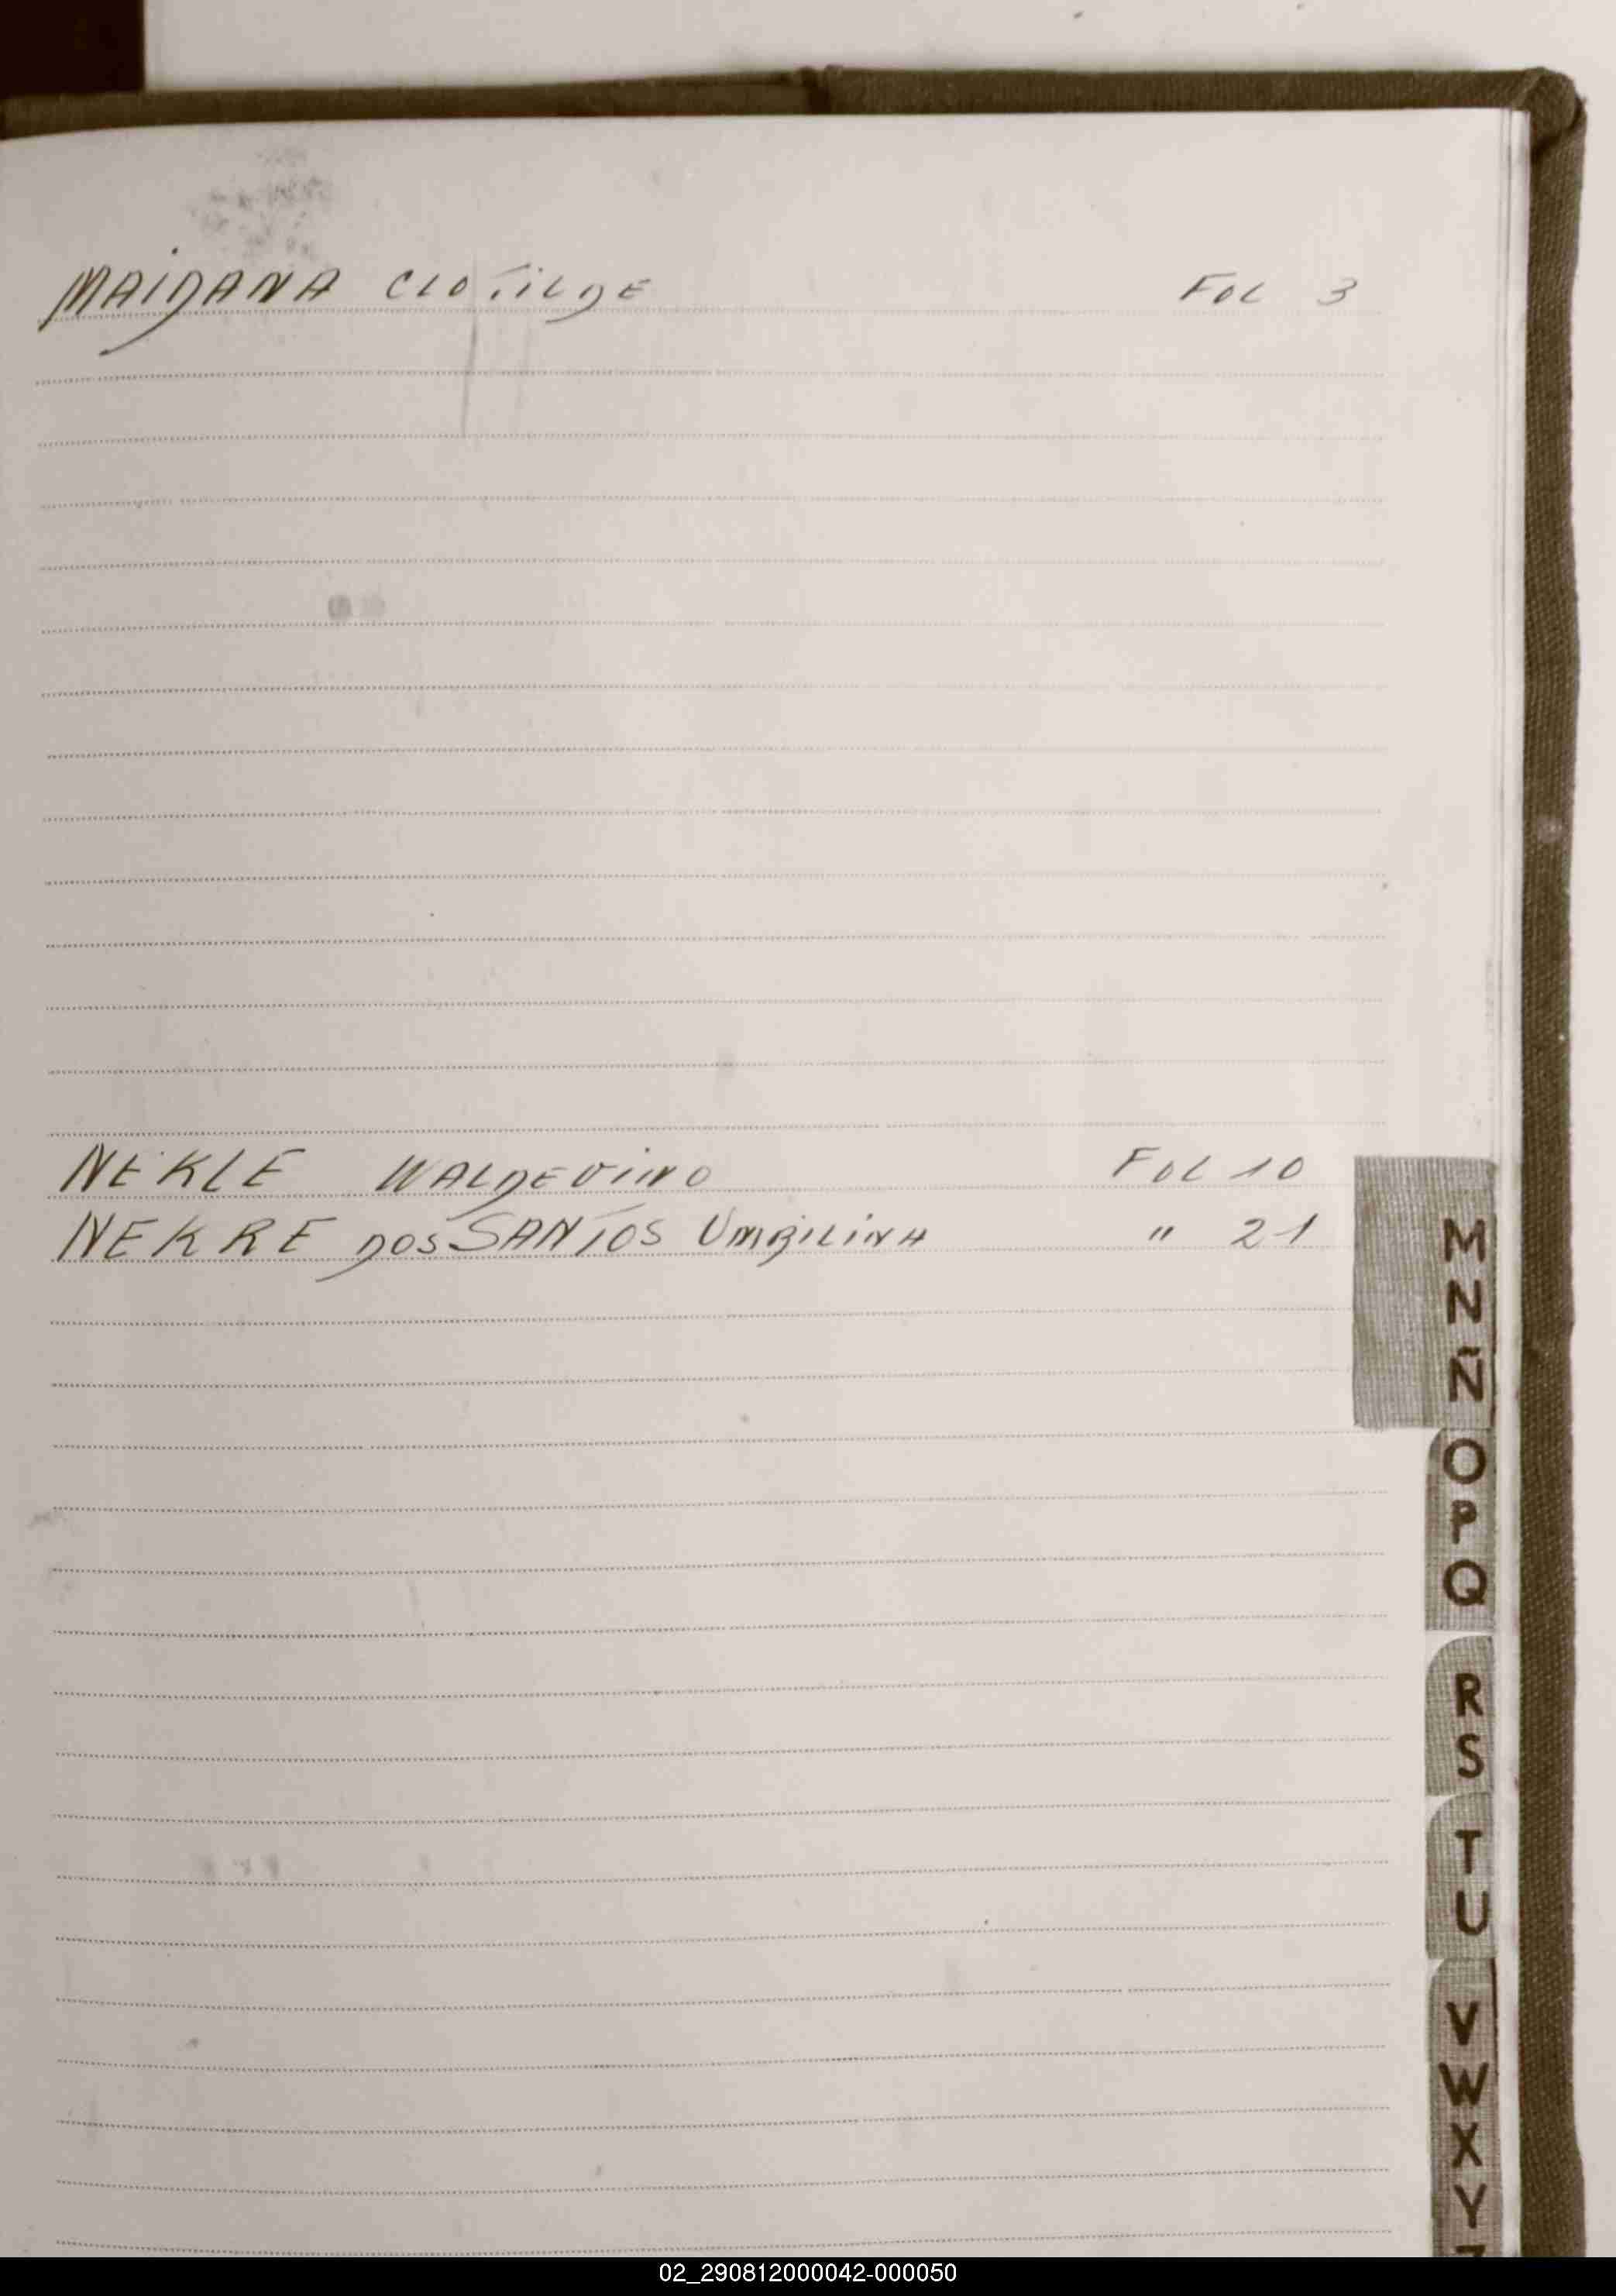 MAIDANA CLOTILDE FOL 3
NEKLE WALDEVINO FOL 10
NEKRE DOS SANTOS UMBILINA " 21
M
N
Ñ
O
P
Q
R
S
T
U
V
W
X
Y
02_290812000042-000050